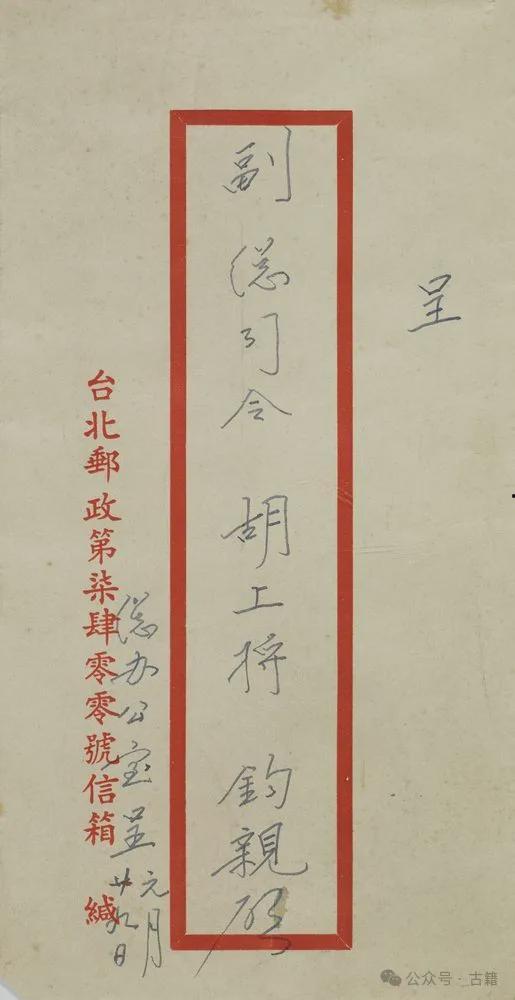 呈
副總司令 胡上將 鈞親啓
台北郵政第柒肆零零號信箱 緘
總办公室呈
元月
廿九日
公众号·古籍